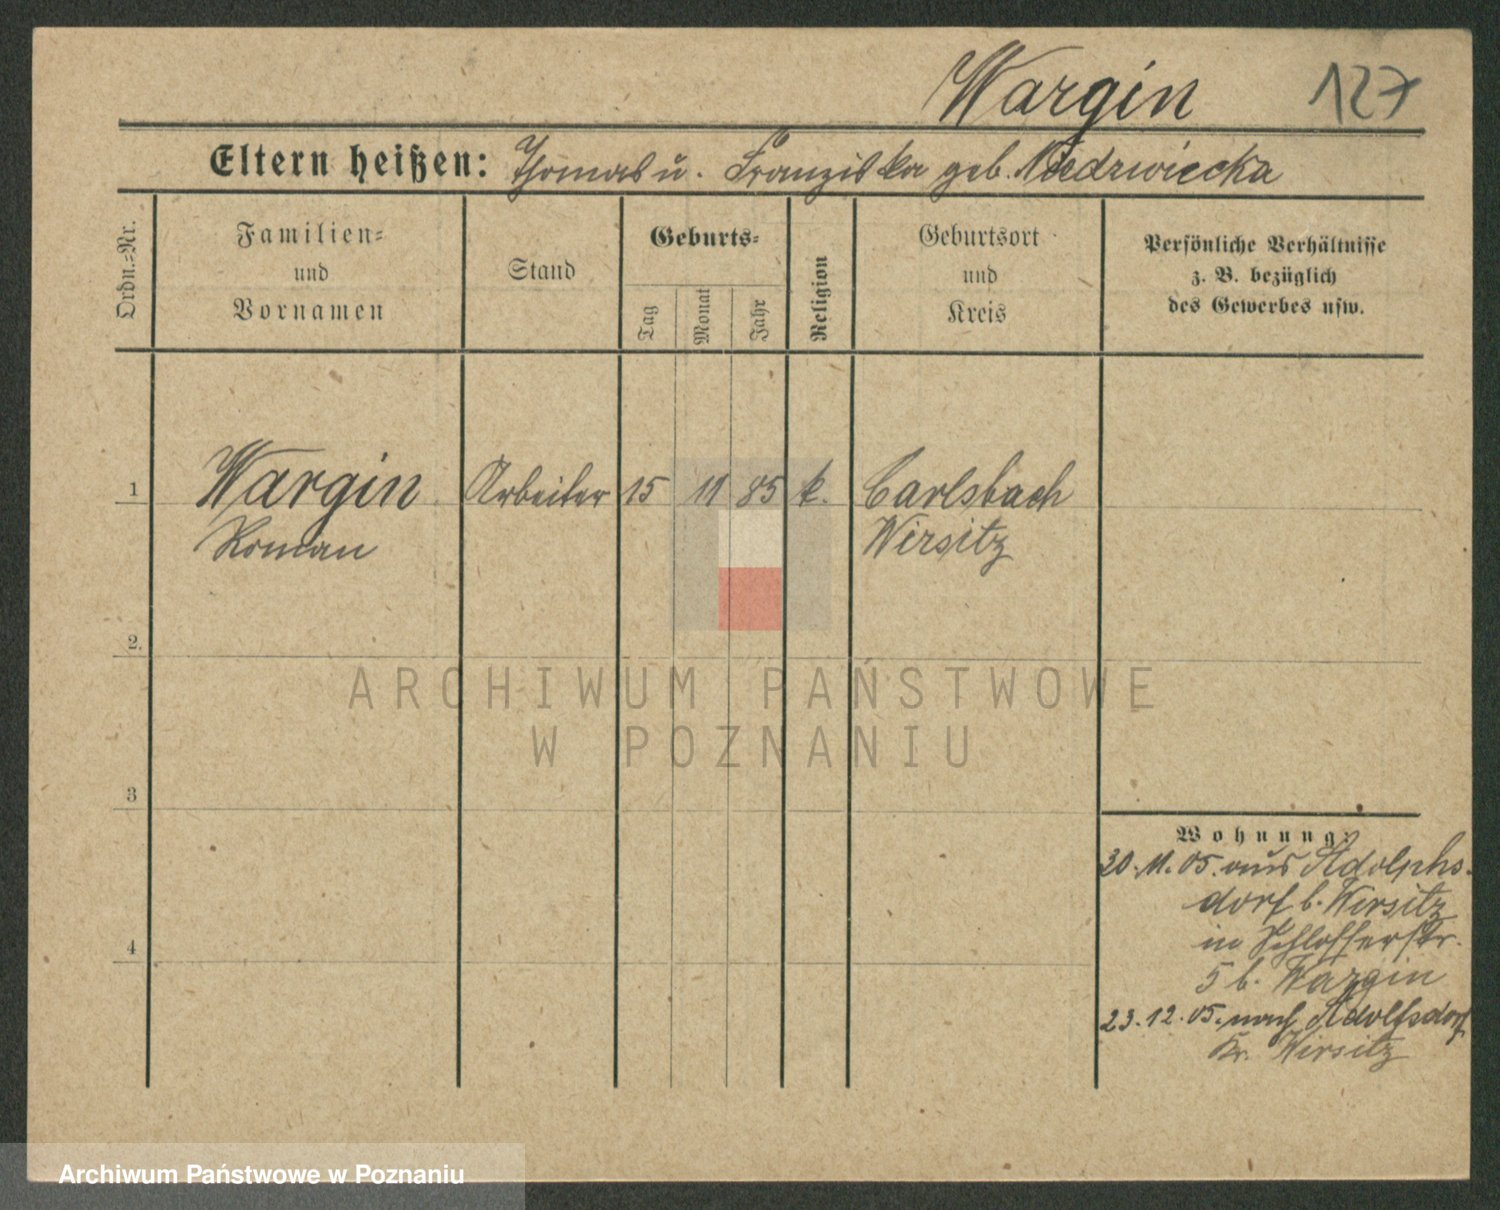 Wargin 127
Eltern heißen: Thomas u. Franziska geb. Niedzwiecka
Ordn.=Nr.
Familien=
und
Vornamen
Stand
Geburts=
Tag
Monat
Jahr
Religion
Geburtsort
und
Kreis
Persönliche Verhältnisse
z. B. bezüglich
des Gewerbes usw.
1 Wargin Arbeiter 15 11 85 k. Carlsbach
Roman Wirsitz
2.
3
4
Wohnung:
30.11.05. aus Adolphs-
dorf b. Wirsitz
in Schlosserstr.
5 b. Wargin
23.12.05. nach Adolfsdorf
Kr. Wirsitz
ARCHIWUM PAŃSTWOWE
W POZNANIU
Archiwum Państwowe w Poznaniu